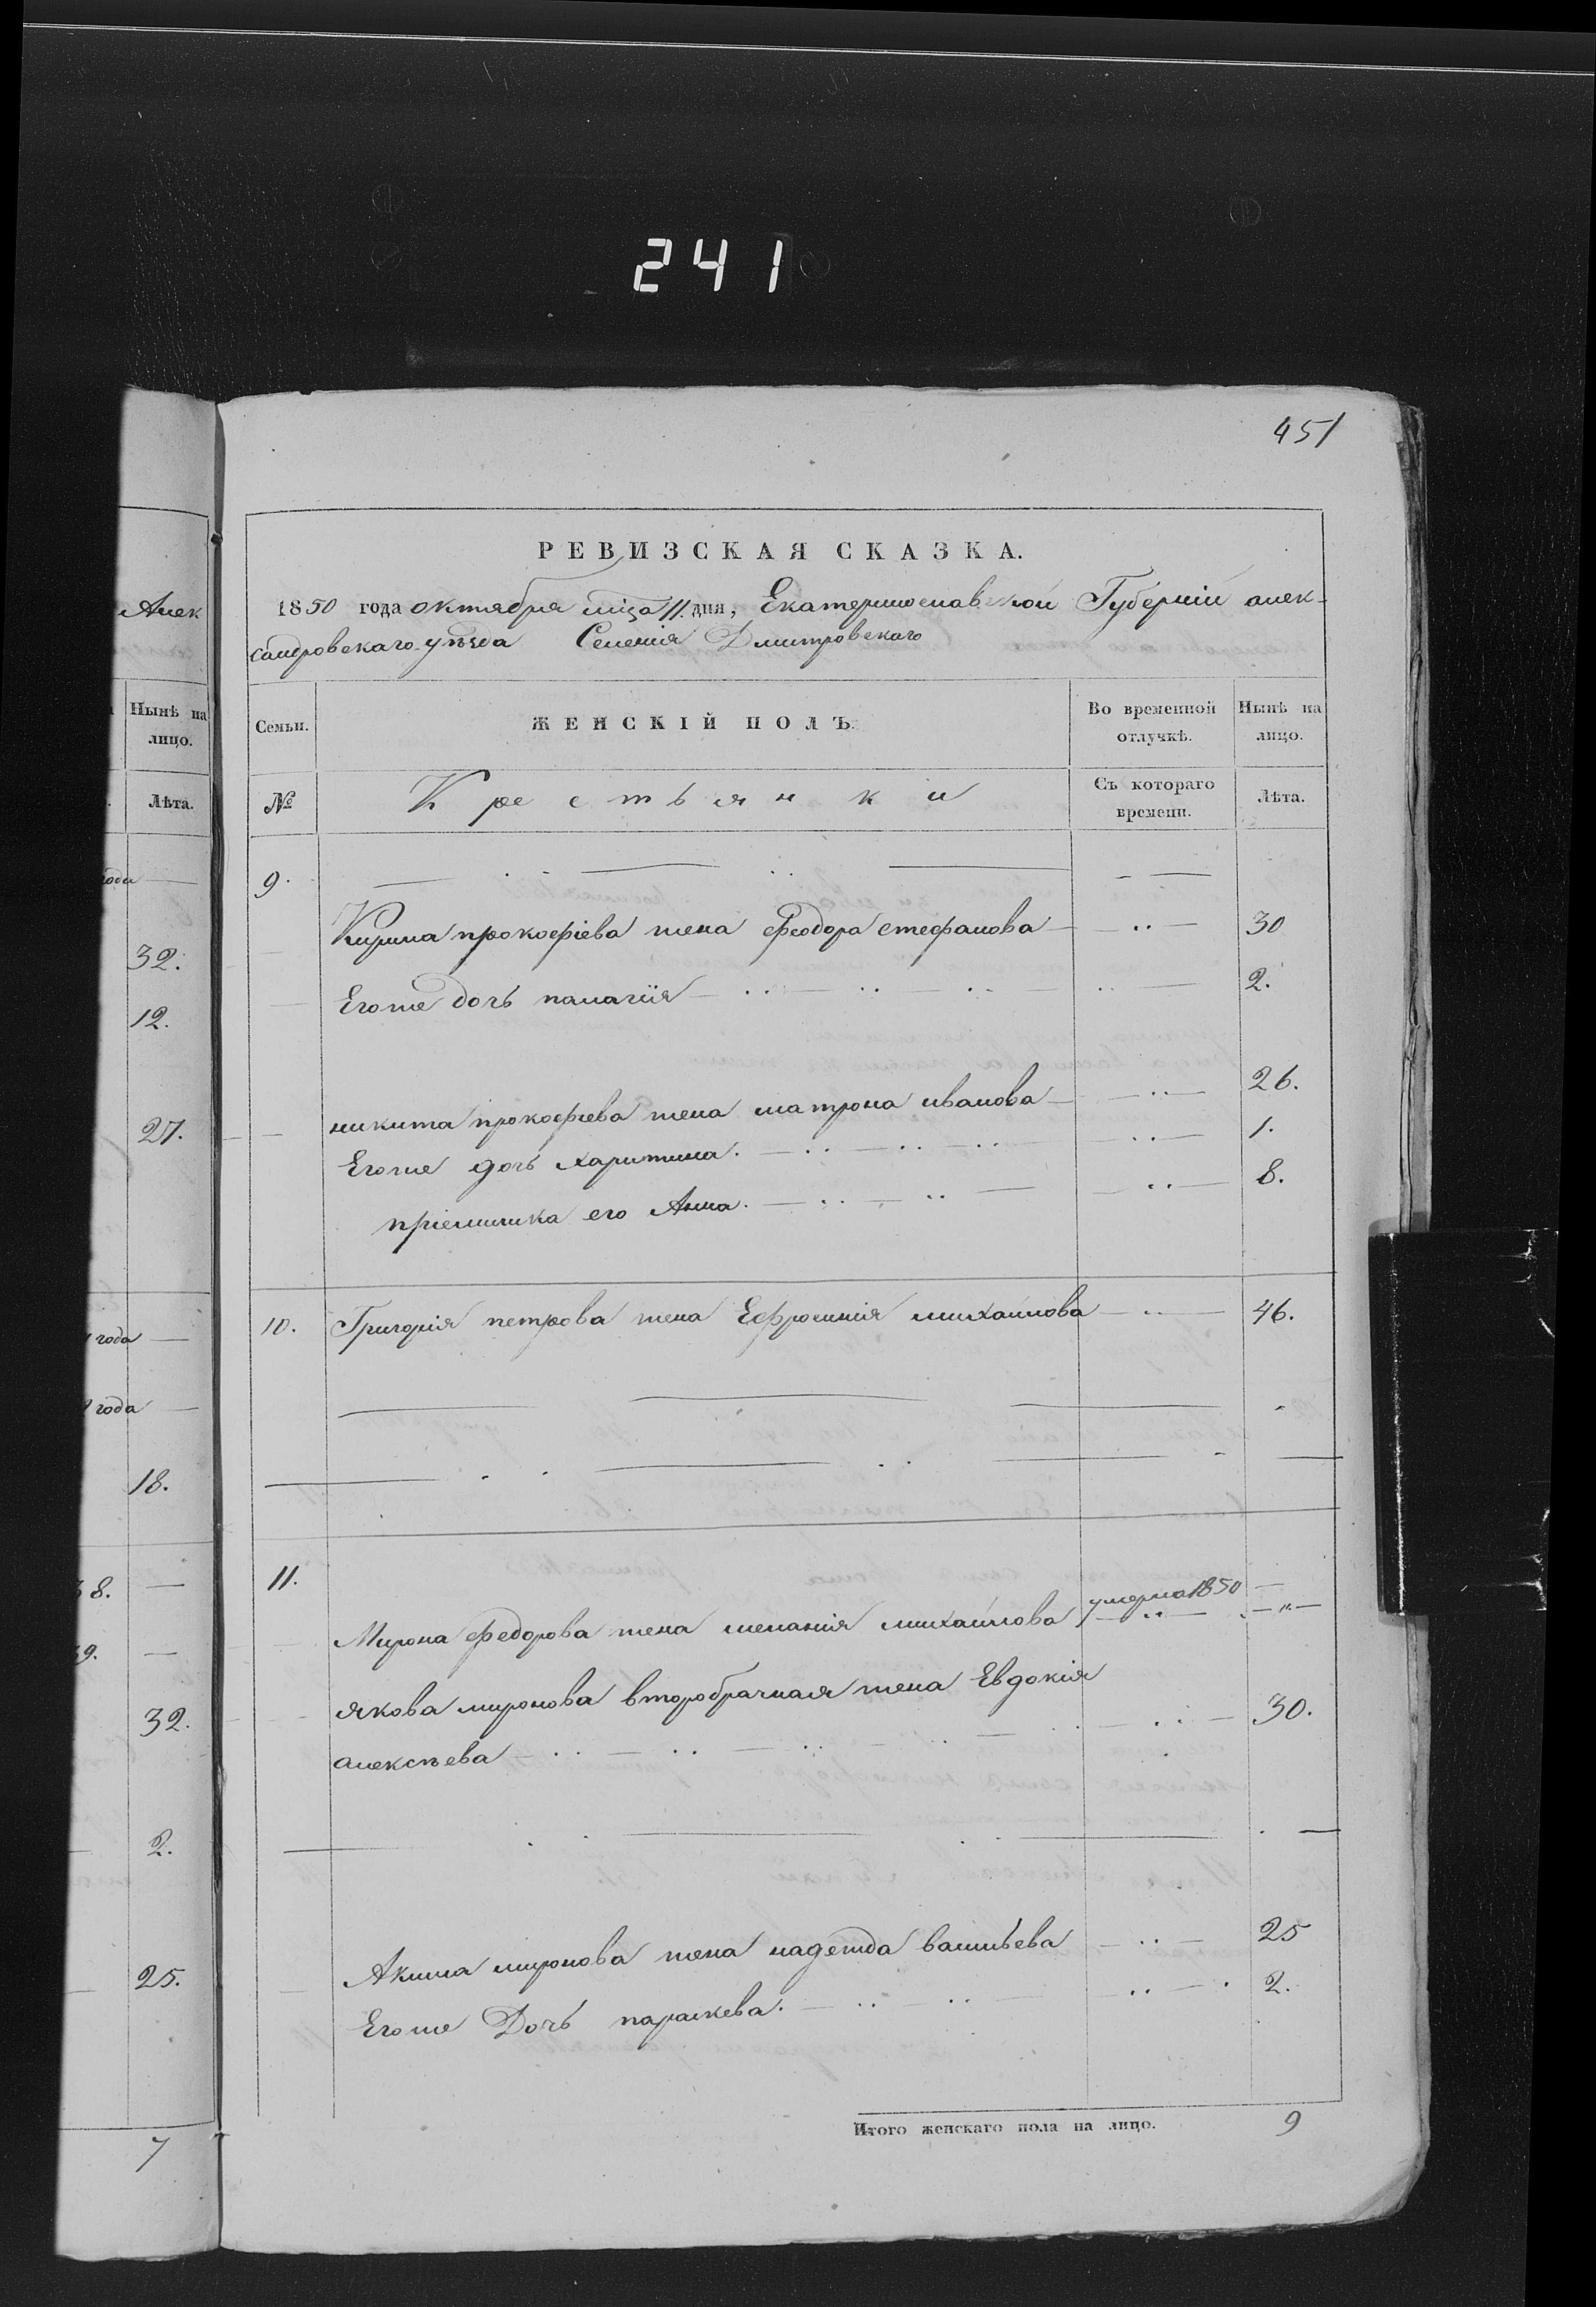 241
451
РЕВИЗСКАЯ СКАЗКА.
1850 года октября мѣца 11 дня, Екатеринославской Губерніи алек-
сандровскаго уѣзда Селенія Дмитровскаго
Семьи.
ЖЕНСКІЙ ПОЛЪ.
Во временной отлучкѣ.
Нынѣ на лицо.
№
Крестьянки
Съ котораго времени.
Лѣта.
9.
Кирила прокофіева жена феодора стефанова 30
Егоже дочь палагія 2.
никита прокофіева жена матрона иванова 26.
Егоже дочь харитина. 1.
пріемишка его Анна. 8.
10. Григорія петрова жена Ефросинія михайлова 46.
11.
Мирона федорова жена меланія михайлова умерла 1850
якова миронова второбрачная жена Евдокія
алексѣева 30.
Акима миронова жена надежда васильева 25
Егоже Дочь параскева. 2.
Итого женскаго пола на лицо. 9
Алек
Нынѣ на
лицо.
Лѣта.
года
32.
12.
27.
года
года
18.
38.
39.
32.
2.
25.
7